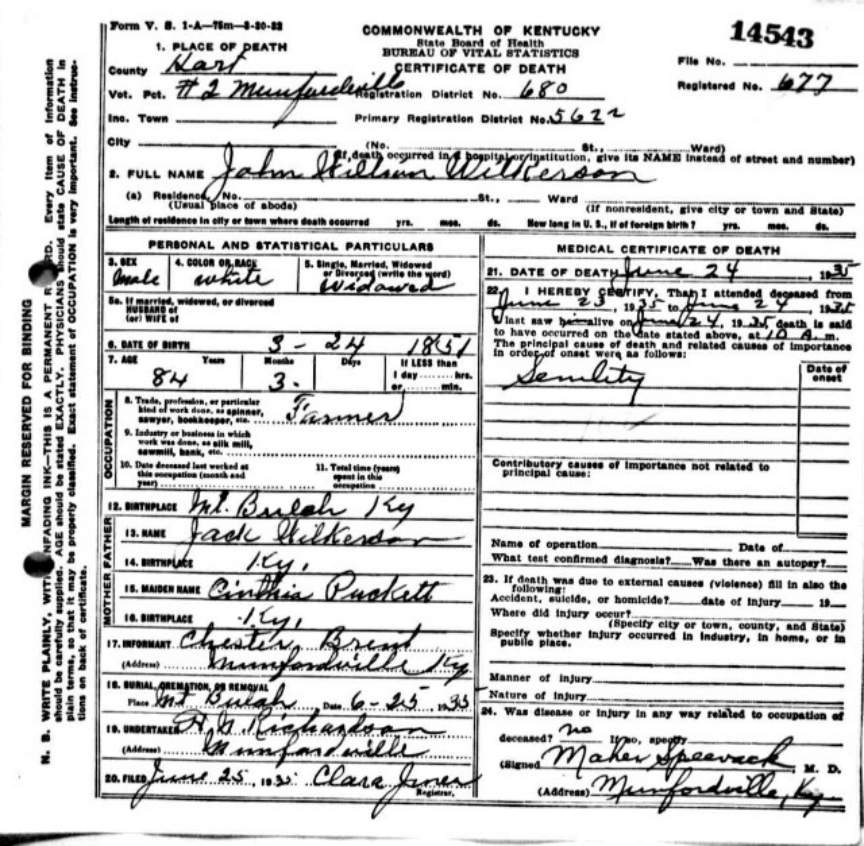 Form V. S. 1-A—75m—8-30-32
COMMONWEALTH OF KENTUCKY
State Board of Health
BUREAU OF VITAL STATISTICS
CERTIFICATE OF DEATH
14543
File No.
Registered No. 677
1. PLACE OF DEATH
County Hart
Vot. Pct. #2 Munfordville Registration District No. 680
Inc. Town Primary Registration District No. 5622
City (No. St., Ward)
(If death occurred in a hospital or institution, give its NAME instead of street and number)
2. FULL NAME John Wilson Wilkerson
(a) Residence, No. St., Ward
(Usual place of abode) (If nonresident, give city or town and State)
Length of residence in city or town where death occurred yrs. mos. ds. How long in U. S., if of foreign birth? yrs. mos. ds.
PERSONAL AND STATISTICAL PARTICULARS
3. SEX 4. COLOR OR RACE 5. Single, Married, Widowed or Divorced (write the word)
Male white Widowed
5a. If married, widowed, or divorced
HUSBAND of
(or) WIFE of
6. DATE OF BIRTH 3 - 24 1851
7. AGE Years Months Days If LESS than
84 3 1 day hrs.
or min.
OCCUPATION
8. Trade, profession, or particular
kind of work done, as spinner,
sawyer, bookkeeper, etc. Farmer
9. Industry or business in which
work was done, as silk mill,
sawmill, bank, etc.
10. Date deceased last worked at
this occupation (month and
year)
11. Total time (years)
spent in this
occupation
12. BIRTHPLACE Mt. Bulah Ky
FATHER
13. NAME Jack Wilkerson
14. BIRTHPLACE Ky.
MOTHER
15. MAIDEN NAME Cinthia Puckett
16. BIRTHPLACE Ky.
17. INFORMANT Chester Brent
(Address) Munfordville Ky
18. BURIAL, CREMATION, OR REMOVAL
Place Mt Bulah Date 6-25 1935
19. UNDERTAKER Richardson
(Address) Munfordville
20. FILED June 25, 1935 Clara Jones
Registrar.
MEDICAL CERTIFICATE OF DEATH
21. DATE OF DEATH June 24, 1935
22. I HEREBY CERTIFY, That I attended deceased from
June 23, 1935 to June 24, 1935
I last saw him alive on June 24, 1935 death is said
to have occurred on the date stated above, at 10 A. m.
The principal cause of death and related causes of importance
in order of onset were as follows:
Date of
onset
Senility
Contributory causes of importance not related to
principal cause:
Name of operation Date of
What test confirmed diagnosis? Was there an autopsy?
23. If death was due to external causes (violence) fill in also the
following:
Accident, suicide, or homicide? date of injury 19
Where did injury occur?
(Specify city or town, county, and State)
Specify whether injury occurred in industry, in home, or in
public place.
Manner of injury
Nature of injury
24. Was disease or injury in any way related to occupation of
deceased? no If so, specify
(Signed , M. D.
(Address) Munfordville, Ky
MARGIN RESERVED FOR BINDING
N. B. WRITE PLAINLY, WITH UNFADING INK—THIS IS A PERMANENT RECORD. Every item of information
should be carefully supplied. AGE should be stated EXACTLY. PHYSICIANS should state CAUSE OF DEATH in
plain terms, so that it may be properly classified. Exact statement of OCCUPATION is very important. See instruc-
tions on back of certificate.